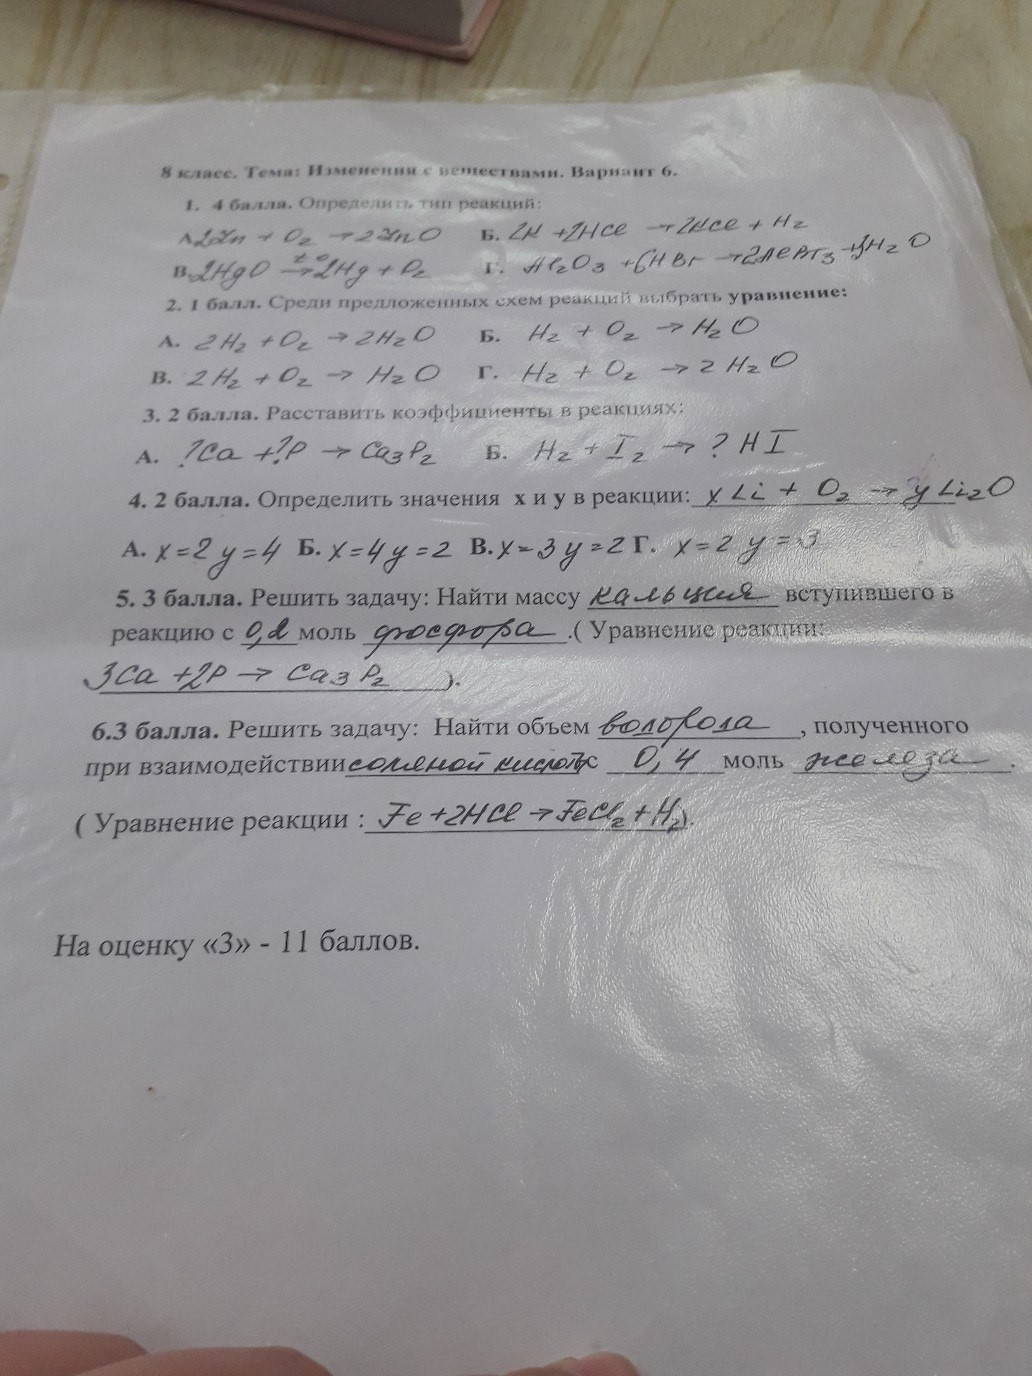 8 класс. Тема: Изменения с веществами. Вариант 6.
1. 4 балла. Определить тип реакций:
А. 2Zn + O₂ → 2ZnO Б. 2K + 2HCl → 2KCl + H₂
В. 2HgO t° → 2Hg + O₂ Г. Al₂O₃ + 6HBr → 2AlBr₃ + 3H₂O
2. 1 балл. Среди предложенных схем реакций выбрать уравнение:
А. 2H₂ + O₂ → 2H₂O Б. H₂ + O₂ → H₂O
В. 2H₂ + O₂ → H₂O Г. H₂ + O₂ → 2H₂O
3. 2 балла. Расставить коэффициенты в реакциях:
А. ?Ca + ?P → Ca₃P₂ Б. H₂ + I₂ → ? HI
4. 2 балла. Определить значения х и у в реакции: x Li + O₂ → y Li₂O
А. x=2 y=4 Б. x=4 y=2 В. x=3 y=2 Г. x=2 y=3
5. 3 балла. Решить задачу: Найти массу кальция вступившего в
реакцию с 0,2 моль фосфора .( Уравнение реакции:
3Ca + 2P → Ca₃P₂ ).
6.3 балла. Решить задачу: Найти объем водорода , полученного
при взаимодействии соляной кислоты с 0,4 моль железа .
( Уравнение реакции : Fe + 2HCl → FeCl₂ + H₂ ).
На оценку «3» - 11 баллов.